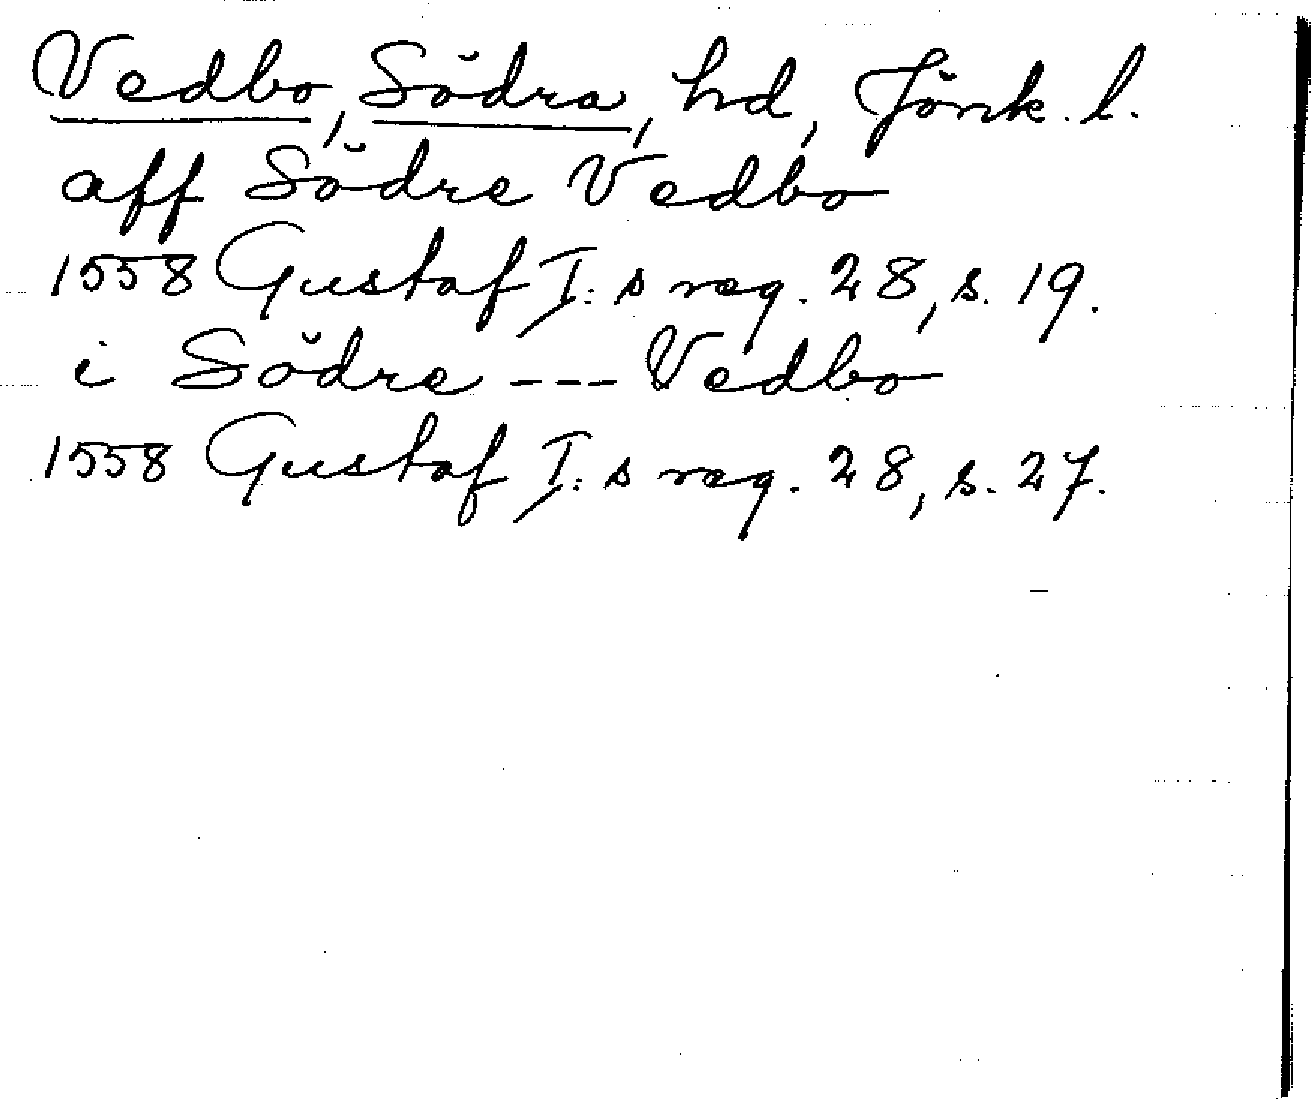 Vedbo, Södra, hd, Jönk. l.
aff Södre Vedbo
1558 Gustaf I:s reg. 28, s. 19.
i Södre --- Vedbo
1558 Gustaf I:s reg. 28, s. 27.